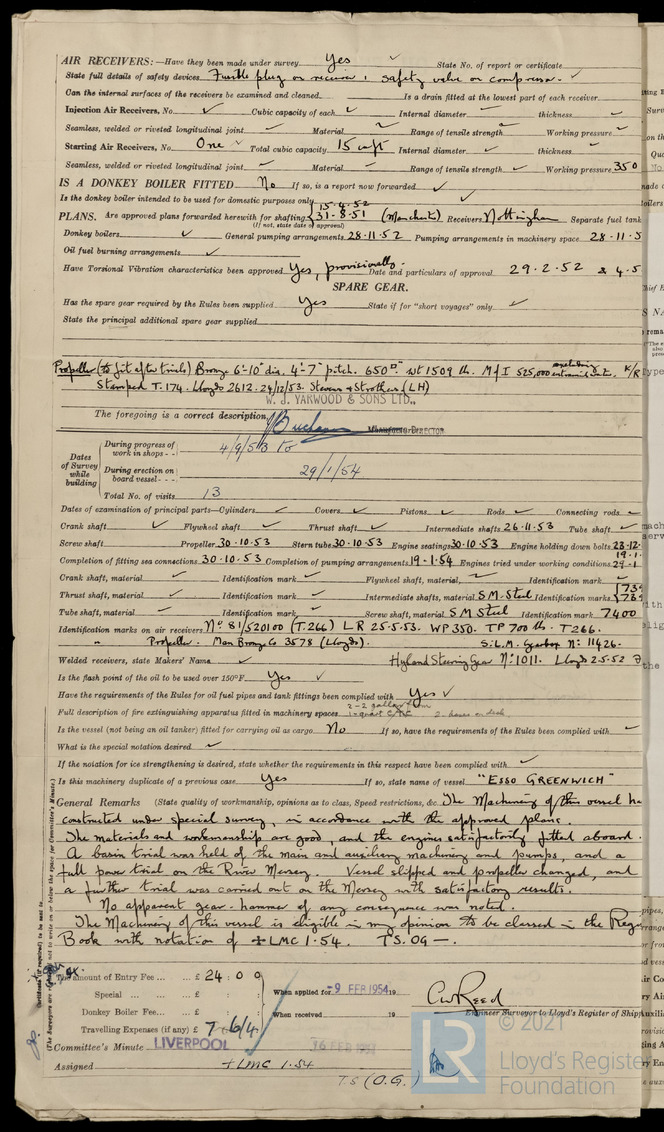 AIR RECEIVERS:—Have they been made under survey Yes ✓ State No. of report or certificate
State full details of safety devices Fusible plug on receiver, safety valve on compressor. ✓
Can the internal surfaces of the receivers be examined and cleaned Is a drain fitted at the lowest part of each receiver
Injection Air Receivers, No. ✓ Cubic capacity of each ✓ Internal diameter ✓ thickness ✓
Seamless, welded or riveted longitudinal joint Material Range of tensile strength Working pressure
Starting Air Receivers, No. One ✓ Total cubic capacity 15 cu ft Internal diameter thickness
Seamless, welded or riveted longitudinal joint Material Range of tensile strength ✓ Working pressure 350
IS A DONKEY BOILER FITTED No If so, is a report now forwarded ✓
Is the donkey boiler intended to be used for domestic purposes only
15-4-52
PLANS. Are approved plans forwarded herewith for shafting 31-8-51 (Manchester) Receivers Nottingham Separate fuel tank
(If not, state date of approval)
Donkey boilers ✓ General pumping arrangements 28-11-52 Pumping arrangements in machinery space 28-11-5
Oil fuel burning arrangements ✓
Have Torsional Vibration characteristics been approved Yes, provisionally. Date and particulars of approval 29.2.52 & 4.5
SPARE GEAR.
Has the spare gear required by the Rules been supplied Yes State if for "short voyages" only ✓
State the principal additional spare gear supplied
Propeller (to fit after trials) Bronze 6'-10" dia. 4'-7" pitch. 650 wt 1509 lb. M of I 525,000 excluding entrained water. K/R
Stamped T.174. Lloyds 2612. 24/12/53. Stevens & Struthers (LH)
W. J. YARWOOD & SONS LTD.,
The foregoing is a correct description,
DIRECTOR
Dates of Survey while building
During progress of work in shops - - 4/9/53 to
During erection on board vessel - - - 29/1/54
Total No. of visits 13
Dates of examination of principal parts—Cylinders ✓ Covers ✓ Pistons ✓ Rods ✓ Connecting rods
Crank shaft ✓ Flywheel shaft ✓ Thrust shaft ✓ Intermediate shafts 26-11-53 Tube shaft ✓
Screw shaft Propeller 30-10-53 Stern tube 30-10-53 Engine seatings 30-10-53 Engine holding down bolts 28-12-
19-1-
Completion of fitting sea connections 30-10-53 Completion of pumping arrangements 19-1-54 Engines tried under working conditions 29-1
Crank shaft, material ✓ Identification mark ✓ Flywheel shaft, material Identification mark
Thrust shaft, material ✓ Identification mark ✓ Intermediate shafts, material S.M. Steel Identification marks
Tube shaft, material Identification mark ✓ Screw shaft, material S M Steel Identification mark 7400
Identification marks on air receivers No 81/520100 (T.266) LR 25.5.53. WP 350. TP 700 lb. T266.
" Propeller. Man Bronze Co 3578 (Lloyds). S.L.M. Gearbox No: 11426.
Welded receivers, state Makers' Name ✓ Hyland Steering Gear No: 1011. Lloyds 2.5.52
Is the flash point of the oil to be used over 150°F. Yes ✓
Have the requirements of the Rules for oil fuel pipes and tank fittings been complied with Yes ✓
Full description of fire extinguishing apparatus fitted in machinery spaces 2-2 gallon foam
1-quart C.T.C 2 hoses on deck.
Is the vessel (not being an oil tanker) fitted for carrying oil as cargo No If so, have the requirements of the Rules been complied with
What is the special notation desired ✓
If the notation for ice strengthening is desired, state whether the requirements in this respect have been complied with ✓
Is this machinery duplicate of a previous case Yes If so, state name of vessel "ESSO GREENWICH"
General Remarks (State quality of workmanship, opinions as to class, Speed restrictions, &c. The Machinery of this vessel ha
constructed under special survey, in accordance with the approved plans.
The materials and workmanship are good, and the engines satisfactorily fitted aboard.
A basin trial was held of the main and auxiliary machinery and pumps, and a
full power trial on the River Mersey. Vessel slipped and propeller changed, and
a further trial was carried out on the Mersey with satisfactory results.
No apparent gear-hammer of any consequence was noted.
The Machinery of this vessel is eligible in my opinion to be classed in the Reg
Book with notation of +LMC 1.54. TS. OG —.
The amount of Entry Fee ... ... £ 24 : 0 0
Special ... ... £
Donkey Boiler Fee... ... £
Travelling Expenses (if any) £ 7 6/4
When applied for -9 FEB 1954 19
When received 19
C W Reed
Engineer Surveyor to Lloyd's Register of Ship
Committee's Minute LIVERPOOL 16 FEB 1954
Assigned +LMC 1.54
TS (O.G.)
© 2021
LR
Lloyd's Register
Foundation